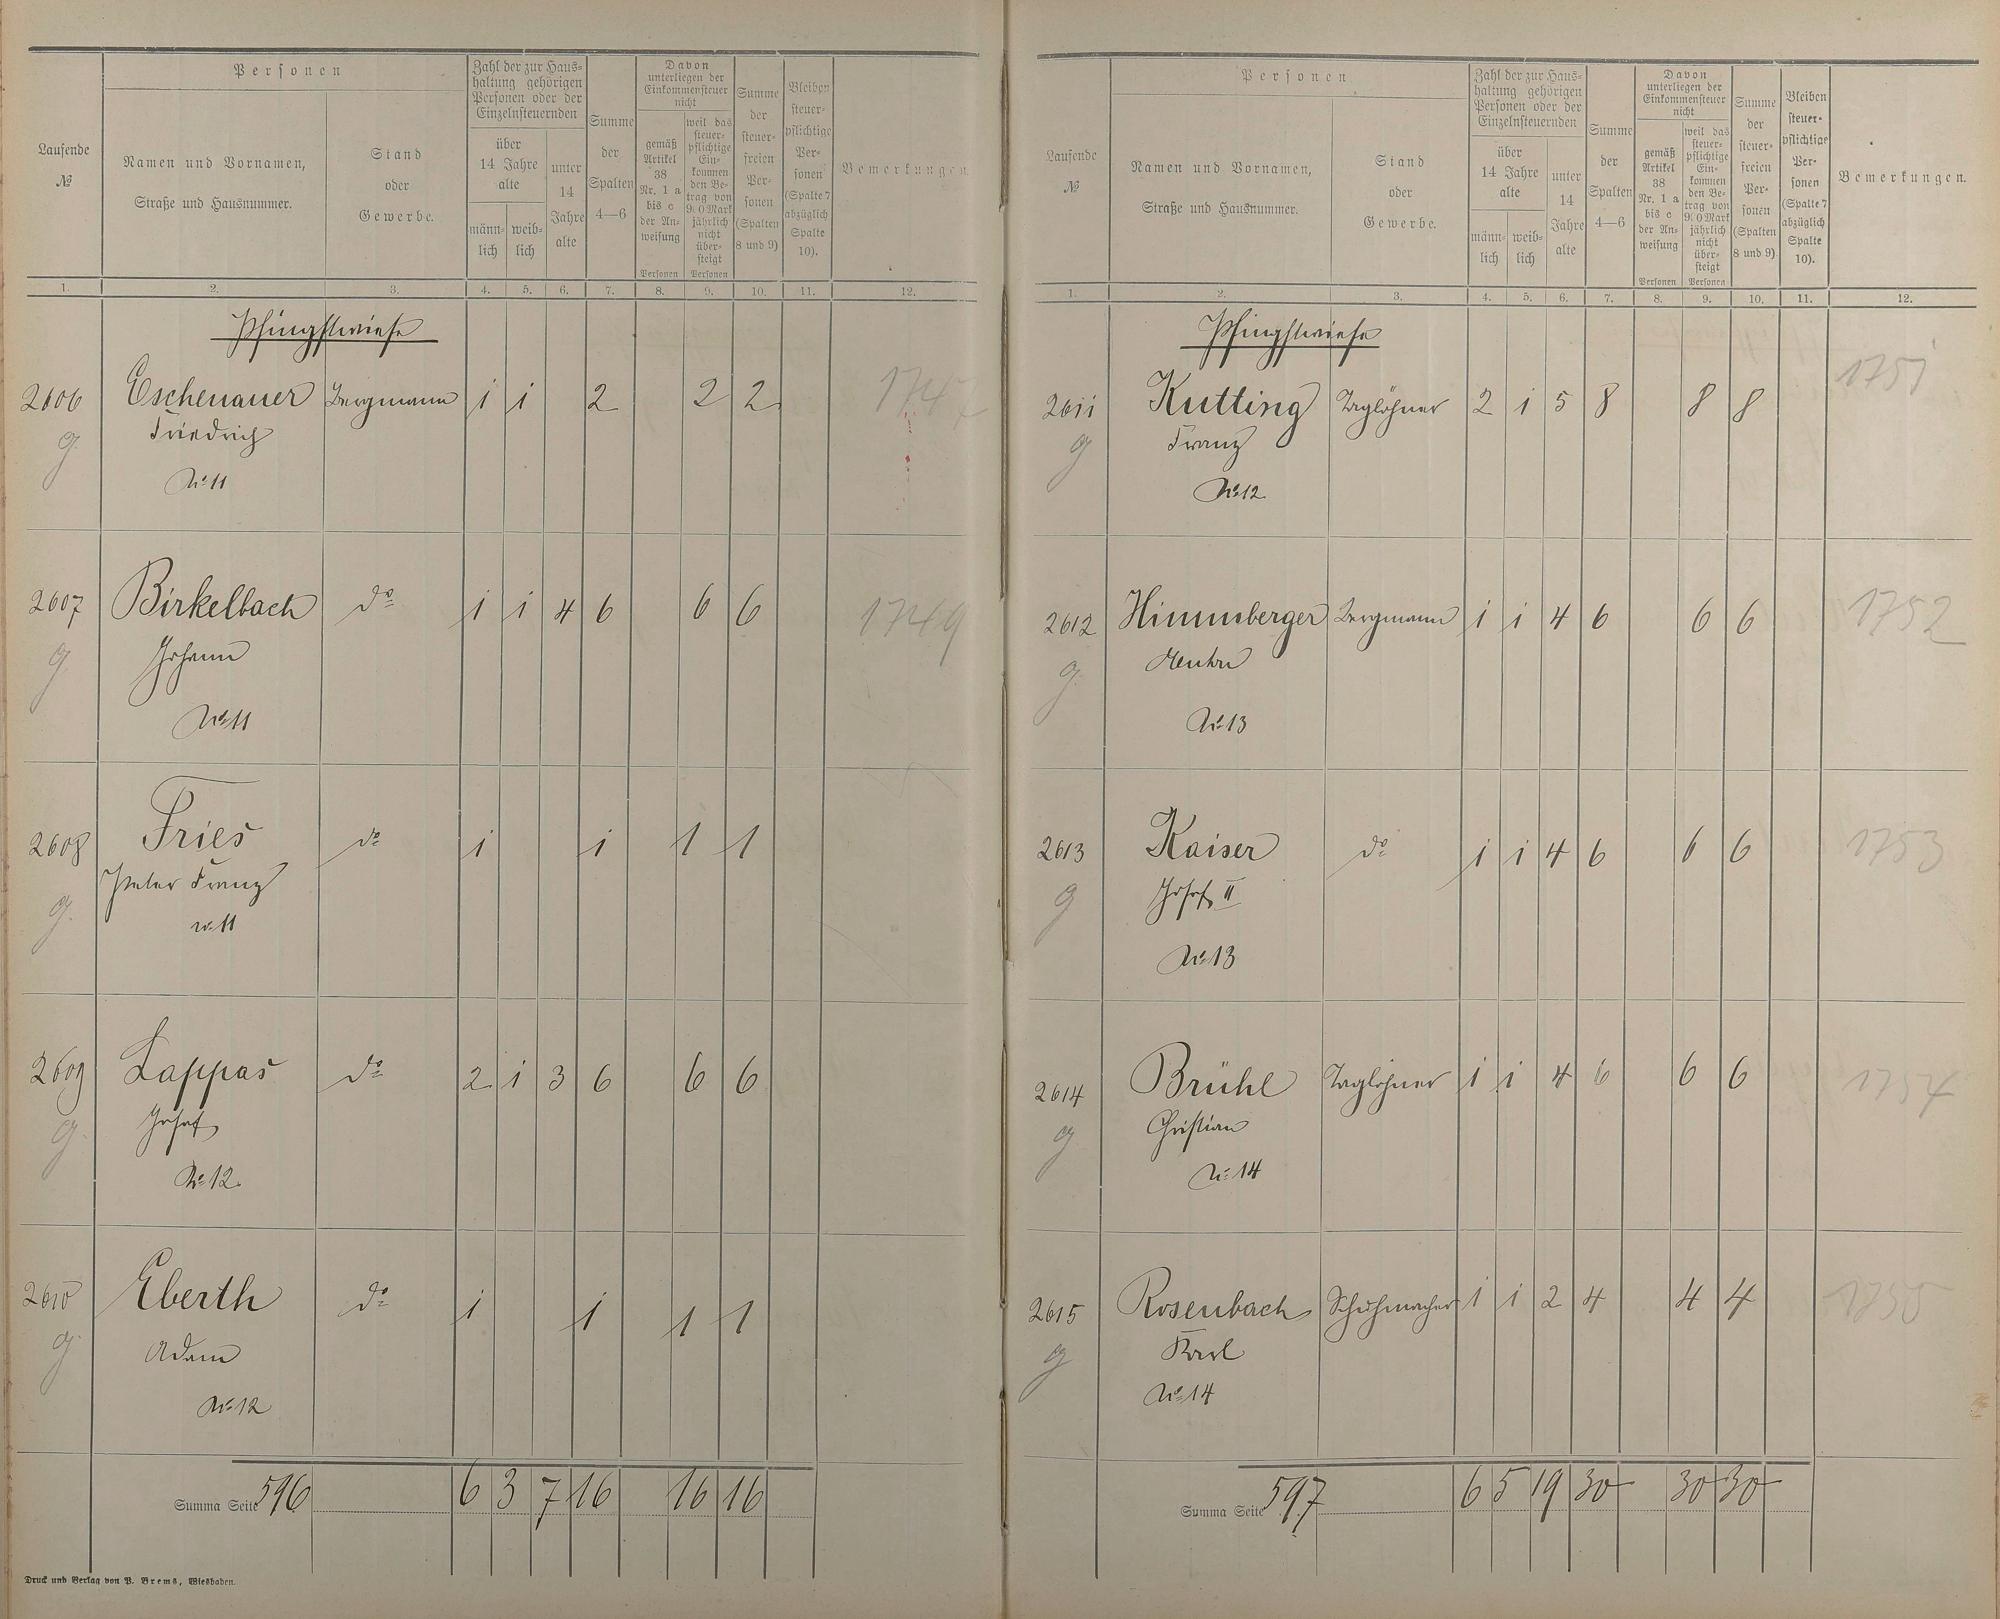 Personen
Laufende
№
Namen und Vornamen,
Straße und Hausnummer.
Stand
oder
Gewerbe.
Zahl der zur Haus-
haltung gehörigen
Personen oder der
Einzelnsteuernden
über
14 Jahre
alte
männ-
lich
weib-
lich
unter
14
Jahre
alte
Summe
der
Spalten
4—6
Davon
unterliegen der
Einkommensteuer
nicht
gemäß
Artikel
38
Nr. 1 a
bis c
der An-
weisung
Personen
weil das
steuer-
pflichtige
Ein-
kommen
den Be-
trag von
900 Mark
jährlich
nicht
über-
steigt
Personen
Summe
der
steuer-
freien
Per-
sonen
(Spalten
8 und 9)
Bleiben
steuer-
pflichtige
Per-
sonen
(Spalte 7
abzüglich
Spalte
10).
Bemerkungen.
1. 2. 3. 4. 5. 6. 7. 8. 9. 10. 11. 12.
Pfingstwiese
2606 Eschenauer Bergmann 1 1 2 2 2 1747
g. Friedrich
No 11
2607 Birkelbach do 1 1 4 6 6 6 1749
g. Johann
No 11
2608 Fries do 1 1 1 1
g. Peter Franz
No 11
2609 Lappas do 2 1 3 6 6 6
g. Josef
No 12.
2610 Eberth do 1 1 1 1
g. Adam
No 12
Summa Seite 596 6 3 7 16 16 16
Druck und Verlag von P. Brems, Wiesbaden.
Personen
Laufende
№
Namen und Vornamen,
Straße und Hausnummer.
Stand
oder
Gewerbe.
Zahl der zur Haus-
haltung gehörigen
Personen oder der
Einzelnsteuernden
über
14 Jahre
alte
männ-
lich
weib-
lich
unter
14
Jahre
alte
Summe
der
Spalten
4—6
Davon
unterliegen der
Einkommensteuer
nicht
gemäß
Artikel
38
Nr. 1 a
bis c
der An-
weisung
Personen
weil das
steuer-
pflichtige
Ein-
kommen
den Be-
trag von
900 Mark
jährlich
nicht
über-
steigt
Personen
Summe
der
steuer-
freien
Per-
sonen
(Spalten
8 und 9)
Bleiben
steuer-
pflichtige
Per-
sonen
(Spalte 7
abzüglich
Spalte
10).
Bemerkungen.
1. 2. 3. 4. 5. 6. 7. 8. 9. 10. 11. 12.
Pfingstwiese
2611 Kutting Taglöhner 2 1 5 8 8 8 1751
g Franz
No 12.
2612 Himmberger Bergmann 1 1 4 6 6 6 1752
g.
No 13
2613 Kaiser do 1 1 4 6 6 6 1753
g Josef II
No 13
2614 Brühl Taglöhner 1 1 4 6 6 6 1754
g. Christian
No 14
2615 Rosenbach Schuhmacher 1 1 2 4 4 4 1755
g Karl
No 14
Summa Seite 597 6 5 19 30 30 30